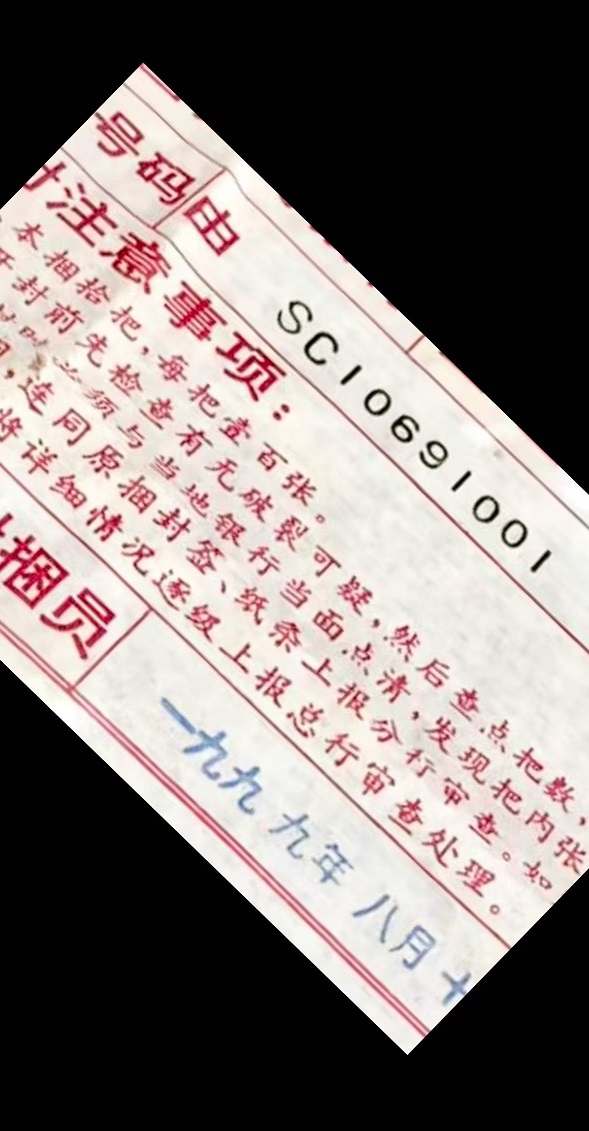 号码由 SC10691001
注意事项:
本捆拾把,每把壹百张。
封前先检查有无破裂可疑,然后查点把数,
必须与当地银行当面点清,发现把内张
,连同原捆封签、纸条上报分行审查。如
将详细情况逐级上报总行审查处理。
捆员
一九九九年八月十